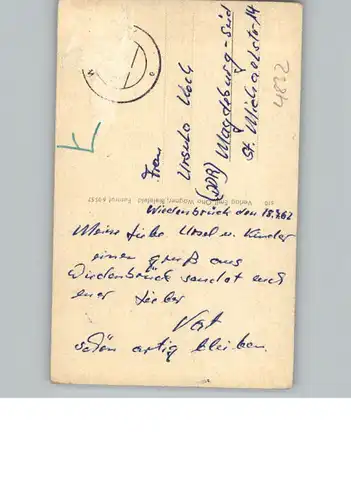 Frau
Ursula Koch
(DDR) Magdeburg-Süd
St. Michaelstr-14
4832
Verlag Emil Otto Wagner, Bielefeld Fernruf 60557
Wiedenbrück den 18.7.62
Meine Liebe Ursel u. Kinder
einen gruß aus
Wiedenbrück sendet euch
euer Lieber
Vat
schön artig bleiben.